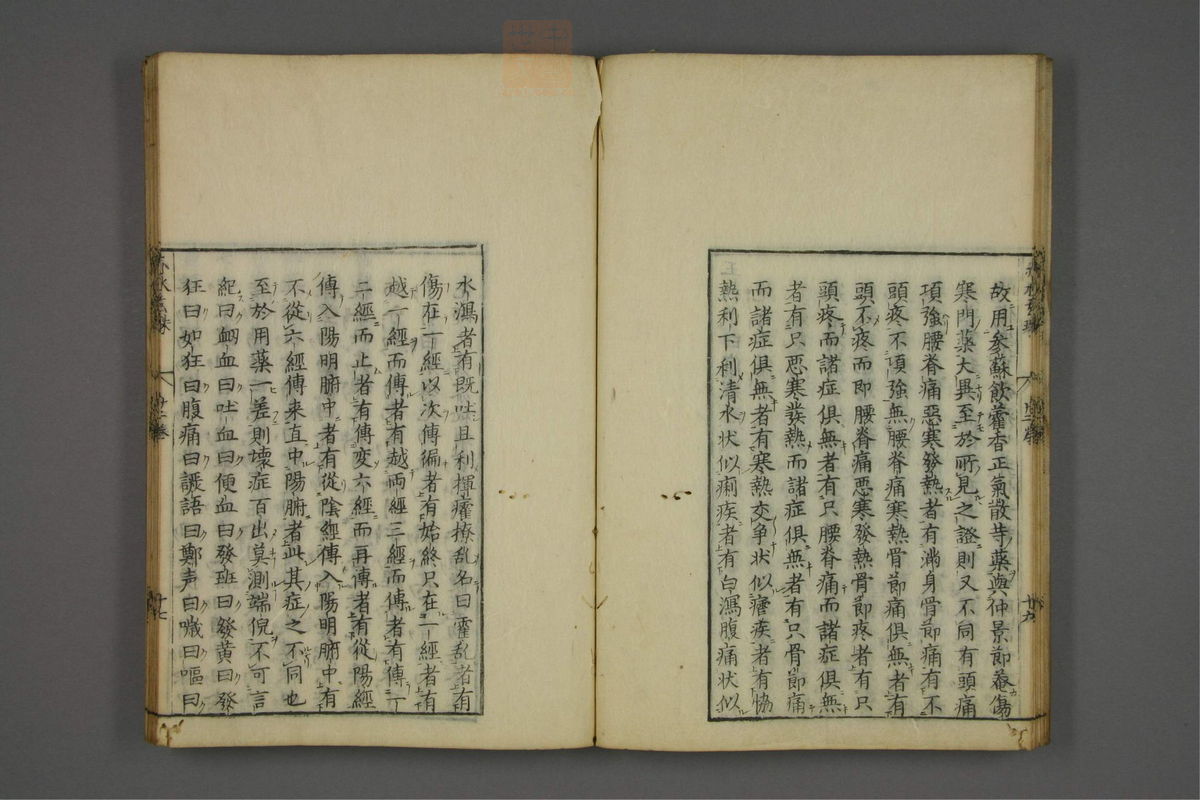 故用參蘇飲藿香正氣散等藥與仲景節菴傷
寒門藥大異至於所見之證則又不同有頭痛
項強腰脊痛惡寒發熱者有滿身骨節痛有不
頭疼不項強無腰脊痛寒熱骨節痛俱無者有
頭不疼而即腰脊痛悪寒發熱骨節疼者有只
頭疼而諸症俱無者有只腰脊痛而諸症俱無
者有只悪寒發熱而諸症俱無者有只骨節痛
而諸症俱無者有寒熱交争状似瘧疾者有協
熱利下利清水状似痢疾者有白瀉腹痛状似
廿六
水瀉者有既吐且利揮癨撩乱名曰霍乱者有
傷在一經以次傳徧者有始終只在一經者有
越一經而傳者有越両經三經而傳者有傳一
二經而止者有傳変六經而再傳者有從陽經
傳入陽明腑中者有從陰經傳入陽明腑中有
不從六經傳来直中陽腑者此其症之不同也
至於用藥一差則壊症百出莫測端倪不可言
紀曰衂血曰吐血曰便血曰發班曰發黄曰發
狂曰如狂曰腹痛曰譫語曰鄭声曰噦曰嘔曰
廿七